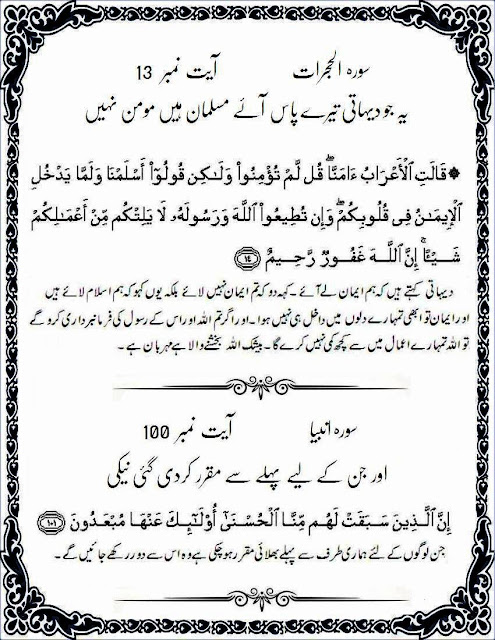 سورہ الحجرات آیت نمبر 13
یہ جو دیہاتی تیرے پاس آئے مسلمان ہیں مومن نہیں
۞ قَالَتِ ٱلْأَعْرَابُ ءَامَنَّا ۖ قُل لَّمْ تُؤْمِنُوا۟ وَلَـٰكِن قُولُوٓا۟ أَسْلَمْنَا وَلَمَّا يَدْخُلِ
ٱلْإِيمَـٰنُ فِى قُلُوبِكُمْ ۖ وَإِن تُطِيعُوا۟ ٱللَّهَ وَرَسُولَهُۥ لَا يَلِتْكُم مِّنْ أَعْمَـٰلِكُمْ
شَيْـًٔا ۚ إِنَّ ٱللَّهَ غَفُورٌ رَّحِيمٌ ١٤
دیہاتی کہتے ہیں کہ ہم ایمان لے آئے۔ کہہ دو کہ تم ایمان نہیں لائے بلکہ یوں کہو کہ ہم اسلام لائے ہیں
اور ایمان تو ابھی تمہارے دلوں میں داخل ہی نہیں ہوا۔ اور اگر تم اللہ اور اس کے رسول کی فرمانبرداری کرو گے
تو اللہ تمہارے اعمال میں سے کچھ کمی نہیں کرے گا۔ بیشک اللہ بخشنے والا ہے مہربان ہے۔
سورہ انبیا آیت نمبر 100
اور جن کے لیے پہلے سے مقرر کردی گئی نیکی
إِنَّ ٱلَّذِينَ سَبَقَتْ لَهُم مِّنَّا ٱلْحُسْنَىٰٓ أُو۟لَـٰٓئِكَ عَنْهَا مُبْعَدُونَ ١٠١
جن لوگوں کے لئے ہماری طرف سے پہلے بھلائی مقرر ہو چکی ہے وہ اس سے دور رکھے جائیں گے۔